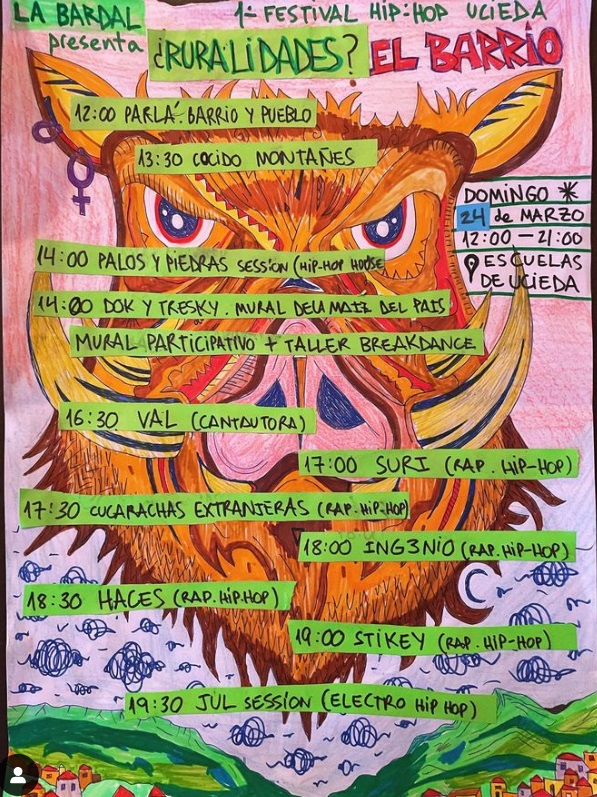 LA BARDAL
presenta
1er FESTIVAL HIP-HOP UCIEDA
¿RURALIDADES? EL BARRIO
12:00 PARLÁ. BARRIO Y PUEBLO
13:30 COCIDO MONTAÑES
DOMINGO
24 de MARZO
12:00 – 21:00
ESCUELAS
DE UCIEDA
14:00 PALOS Y PIEDRAS SESSION (HIP-HOP HOUSE
14:00 DOK Y TRESKY. MURAL DEL MAIZ DEL PAIS
MURAL PARTICIPATIVO + TALLER BREAKDANCE
16:30 VAL (CANTAUTORA)
17:00 SURI (RAP. HIP-HOP)
17:30 CUCARACHAS EXTRANJERAS (RAP. HIP-HOP)
18:00 ING3NIO (RAP. HIP-HOP)
18:30 HACES (RAP. HIP.HOP)
19:00 STIKEY (RAP. HIP-HOP)
19:30 JUL SESSION (ELECTRO HIP HOP)